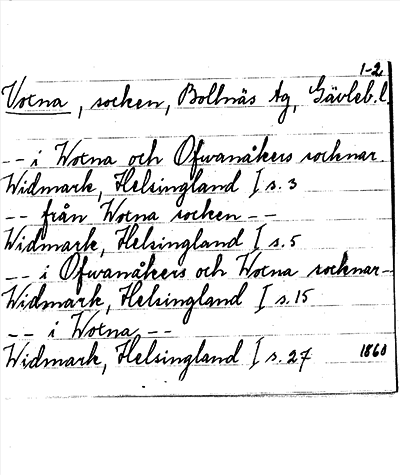 1-2
Votna, socken, Bollnäs tg, Gävleb.l.
-- i Wotna och Ofwanåkers socknar.
Widmark, Helsingland I s. 3
-- från Wotna socken --
Widmark, Helsingland I s. 5
-- i Ofwanåkers och Wotna socknar--
Widmark, Helsingland I s. 15
-- i Wotna, --
Widmark, Helsingland I s. 27 1860